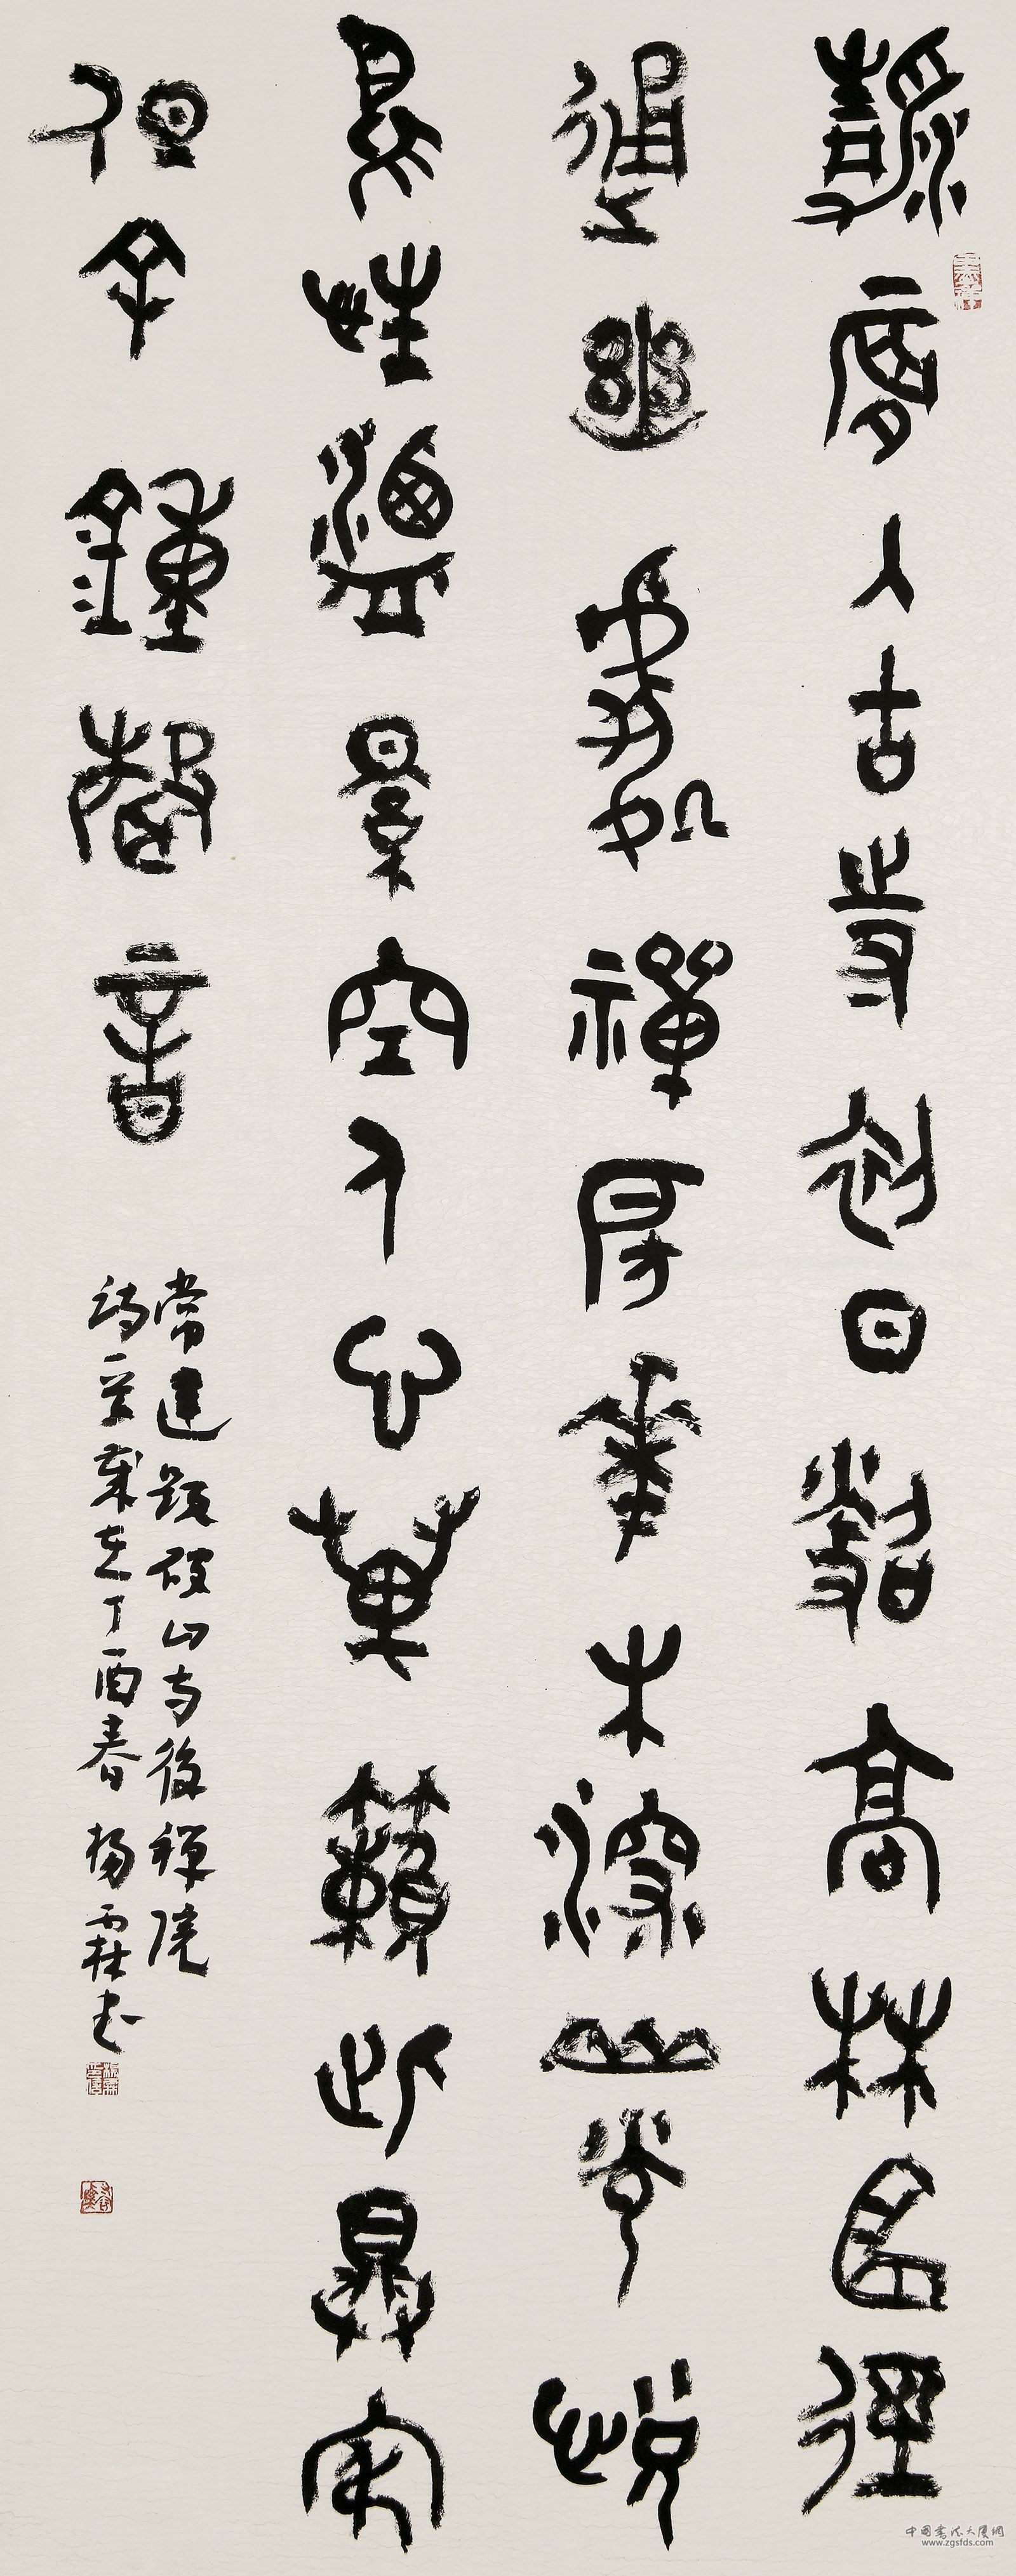 清晨入古寺初日照高林曲徑
通幽處禪房花木深山光悅
鳥性潭景空人心萬籟此俱寂
但余鍾磬音
常建題破山寺後禪院
詩歲在丁酉春楊霖書
中國書法大廈網
www.zgsfds.com